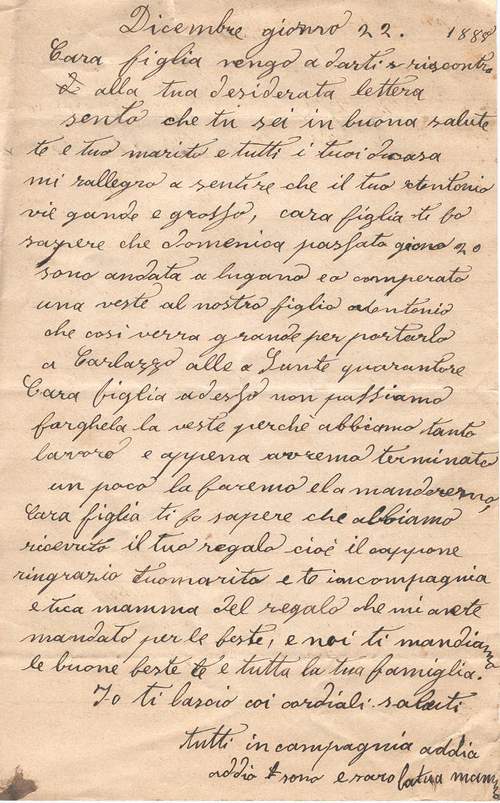 Dicembre giorno 22. 188
Cara figlia vengo a darti riscontro
alla tua desiderata lettera
sento che tu sei in buona salute
te e tuo marito e tutti i tuoi di casa
mi rallegro a sentire che il tuo Antonio
vie gande e grosso, cara figlia ti fo
sapere che domenica passata giono 20
sono andata a lugano e o comperato
una veste al nostro figlio Antonio
che cosi verra grande per portarlo
a Carlazzo alle Sante quarantore
Cara figlia adesso non passiamo
farghela la veste perchè abbiamo tanto
lavoro e appena avremo terminato
un poco la faremo e la manderemo,
Cara figlia ti fo sapere che abbiamo
ricevuto il tuo regalo cioè il cappone
ringrazio tuo marito e te in compagnia
e tua mamma del regalo che mi avete
mandato per le feste, e noi ti mandiamo
le buone feste te e tutta la tua famiglia.
Io ti lascio coi cordiali saluti
tutti in compagnia addia
addio sono e saro la tua mam